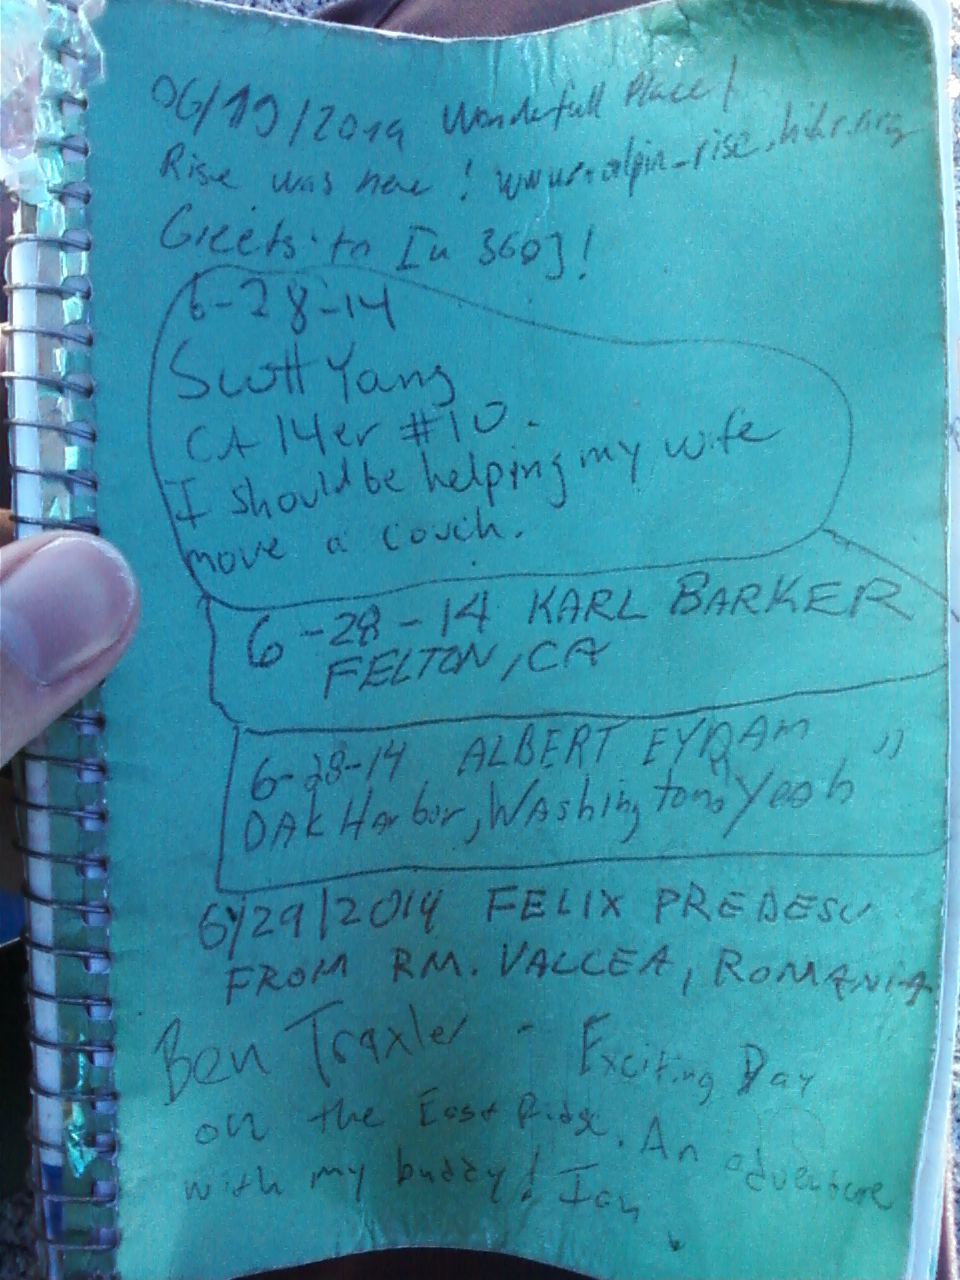 06/19/2014 Wonderfull Place!
Rise was here! www.alpin-rise.hikr.org
Greets to
6-28-14
Scott Yang
CA 14er #10.
I should be helping my wife
move a couch.
6-28-14 KARL BARKER
FELTON, CA
6-28-14 ALBERT
OAK Harbor, Washington, Yeah
6/29/2014 FELIX PREDESCU
FROM RM. VALCEA, ROMANIA
Ben Traxler - Exciting Day
on the East Ridge. An adventure
with my buddy! Ian